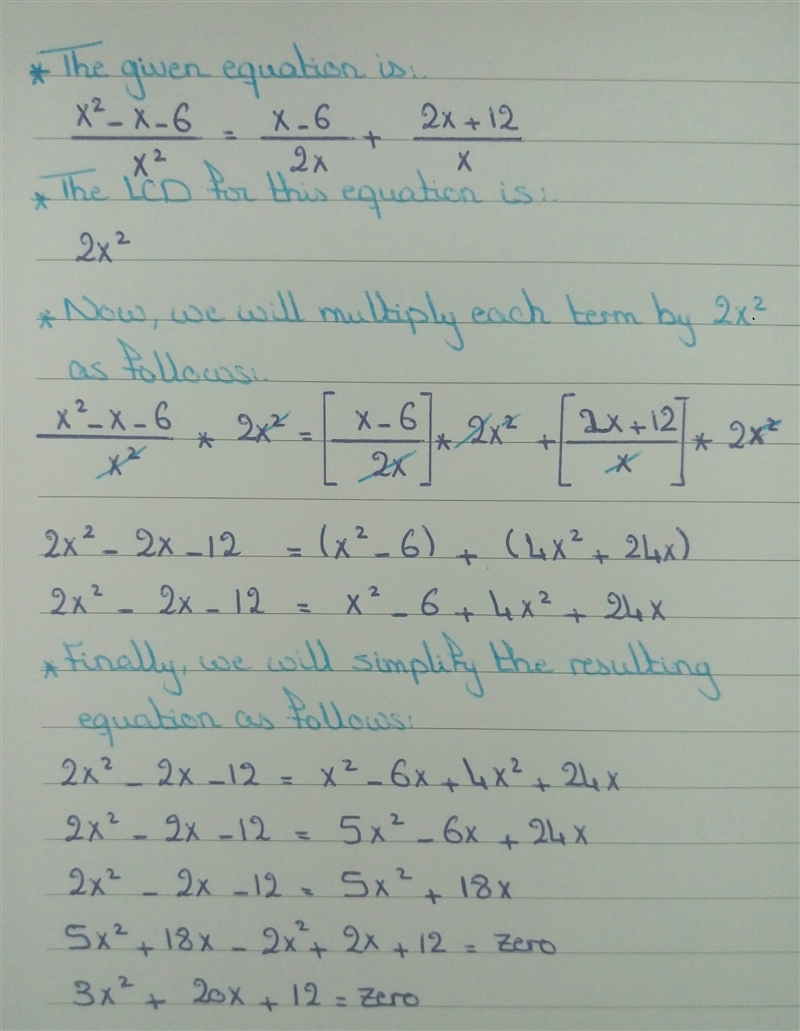 * The given equation is:.
x² - x - 6 / x² = x - 6 / 2x + 2x + 12 / x
* The LCD for this equation is:.
2x²
* Now, we will multiply each term by 2x²
as follows:.
x² - x - 6 / x² * 2x² = [x - 6 / 2x] * 2x² + [2x + 12 / x] * 2x²
2x² - 2x - 12 = (x² - 6) + (4x² + 24x)
2x² - 2x - 12 = x² - 6 + 4x² + 24x
* Finally, we will simplify the resulting
equation as follows:
2x² - 2x - 12 = x² - 6x + 4x² + 24x
2x² - 2x - 12 = 5x² - 6x + 24x
2x² - 2x - 12 = 5x² + 18x
5x² + 18x - 2x² + 2x + 12 = zero
3x² + 20x + 12 = zero